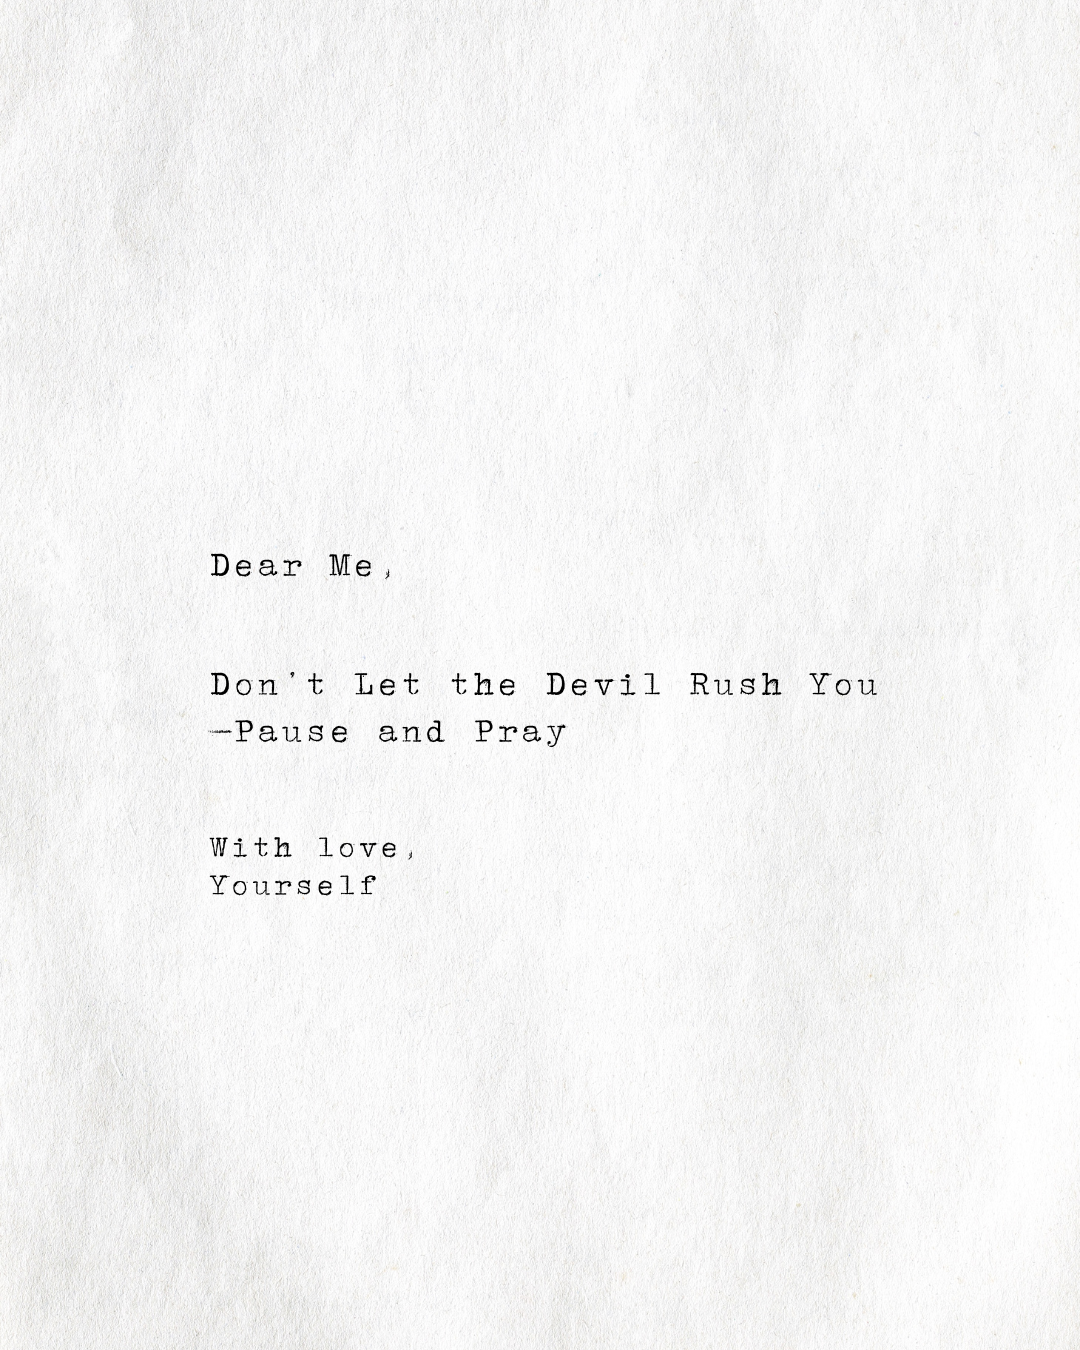 Dear Me,
Don't Let the Devil Rush You
—Pause and Pray
With love,
Yourself